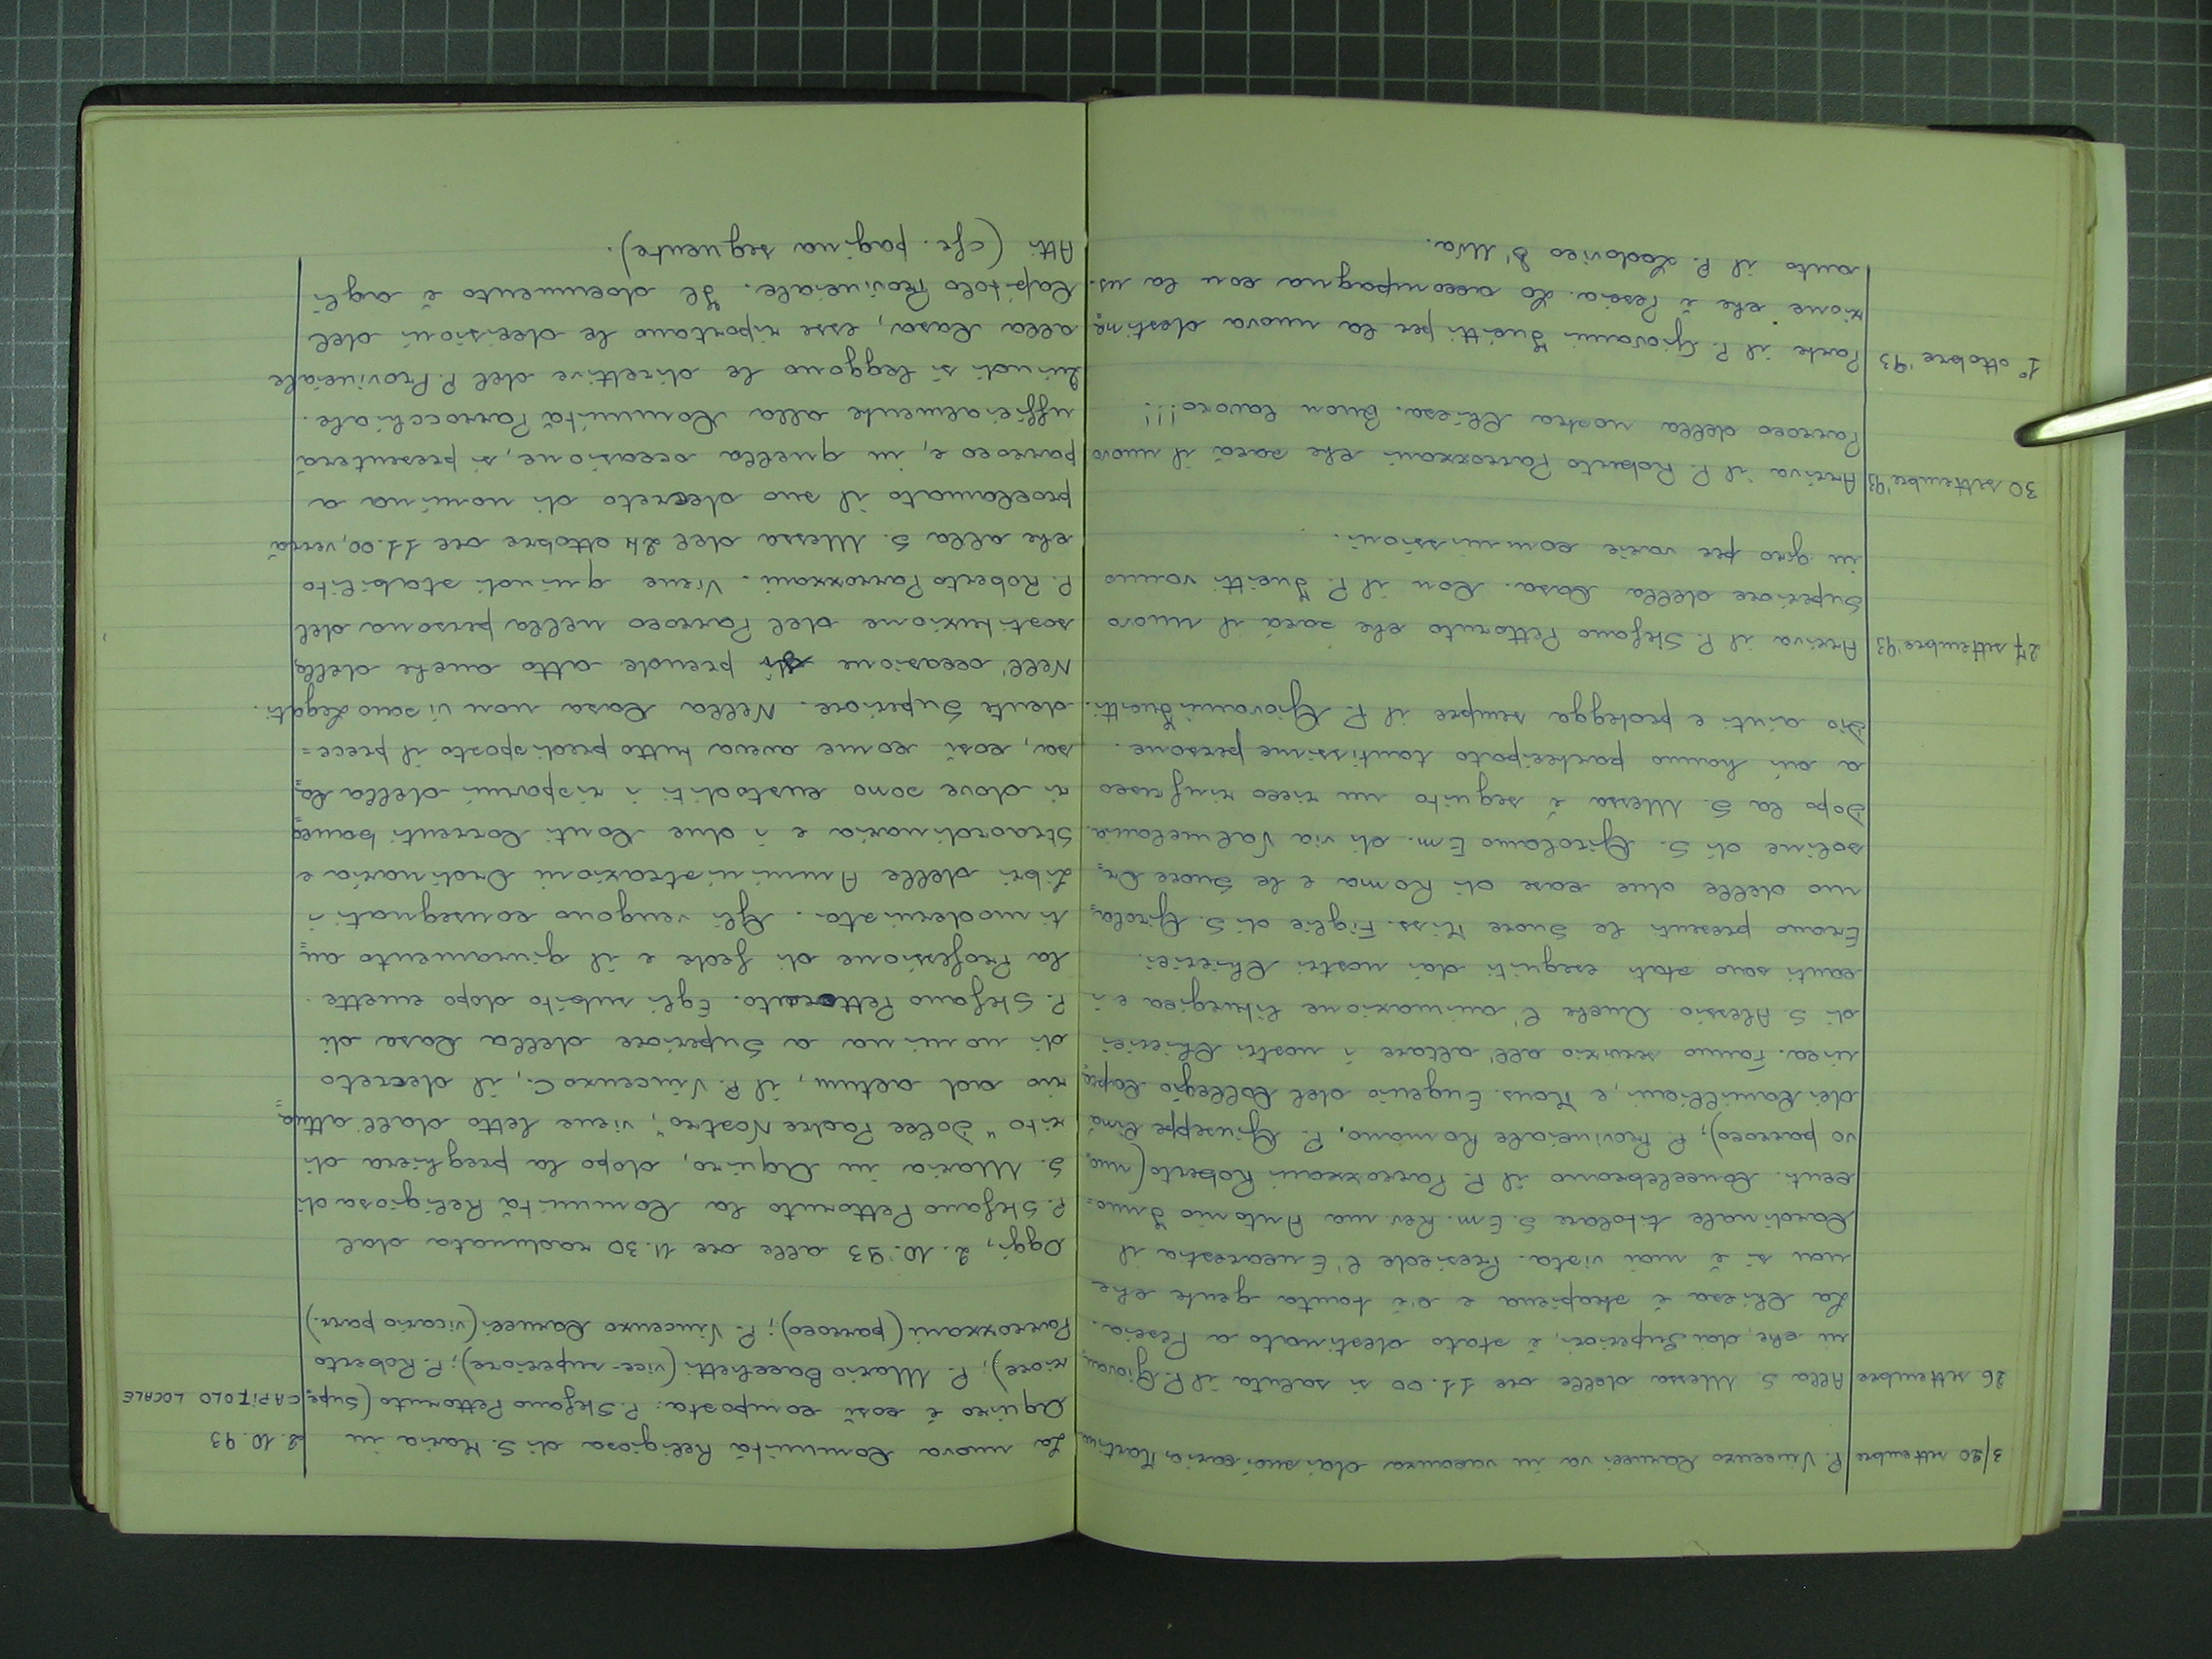 3/20 settembre P. Vincenzo Carucci va in vacanza dai suoi cari a Martina
26 settembre Alla S. Messa delle ore 11.00 si saluta il P. Giovan=
ni che, dai Superiori, è stato destinato a Pescia.
La Chiesa è strapiena e c'è tanta gente che
non si è mai vista. Presiede l'Eucarestia il
Cardinale titolare S. Em. Rev.ma Antonio Inno=
centi. Concelebrano il P. Parrozzani Roberto (nuo=
vo parroco); P. Provinciale Romano, P. Giuseppe
dei Camilliani, e Mons. Eugenio del Collegio Capra=
nica. Fanno servizio all'altare i nostri Chierici
di S. Alessio. Anche l'animazione liturgica e i
canti sono stati eseguiti dai nostri Chierici.
Erano presenti le Suore Miss. Figlie di S. Girola=
mo delle due case di Roma e le Suore Or=
soline di S. Girolamo Em. di via Valmelaina.
Dopo la S. Messa è seguito un ricco rinfresco
a cui hanno partecipato tantissime persone.
Dio aiuti e protegga sempre il P. Giovanni Jucitti.
27 settembre '93 Arriva il P. Stefano Pettoruto che sarà il nuovo
Superiore della Casa. Con il P. Jucitti vanno
in giro per varie commissioni.
30 settembre '93 Arriva il P. Roberto Parrozzani che sarà il nuovo
Parroco della nostra Chiesa. Buon lavoro!!!
1° ottobre '93 Parte il P. Giovanni Jucitti per la nuova destina=
zione che è Pescia. Lo accompagna con la us.
auto il P. Lodovico D'Uva.
La nuova Comunità Religiosa di S. Maria in 2.10.93
Aquiro è così composta: P. Stefano Pettoruto (Supe= CAPITOLO LOCALE
riore); P. Mario Bacchetti (vice-superiore); P. Roberto
Parrozzani (parroco); P. Vincenzo Carucci (vicario parr.)
Oggi, 2.10.'93 alle ore 11.30 radunata dal
P. Stefano Pettoruto la Comunità Religiosa di
S. Maria in Aquiro, dopo la preghiera di
rito "Dolce Padre Nostro", viene letto dall'attua=
rio ad actum, il P. Vincenzo C., il decreto
di nomina a Superiore della Casa di
P. Stefano Pettoruto. Egli subito dopo emette
la Professione di fede e il giuramento an=
timodernista. Gli vengono consegnati i
Libri delle Amministrazioni Ordinaria e
Straordinaria e i due Conti Correnti banca=
ri dove sono custoditi i risparmi della Ca=
sa, così come aveva tutto predisposto il prece=
dente Superiore. Nella Casa non vi sono Legati.
Nell'occasione si prende atto anche della
sostituzione del Parroco nella persona del
P. Roberto Parrozzani. Viene quindi stabilito
che alla S. Messa del 24 ottobre ore 11.00, verrà
proclamato il suo decreto di nomina a
parroco e, in quella occasione, si presenterà
ufficialmente alla Comunità Parrocchiale.
Quindi si leggono le direttive del P. Provinciale
alla Casa, esse riportano le decisioni del
Capitolo Provinciale. Il documento è agli
Atti (cfr. pagina seguente).